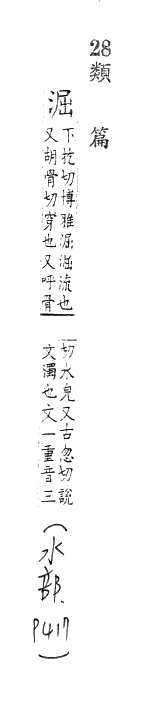 28類篇
淈
下扢切博雅淈淈流也
又胡骨切穿也又呼骨
切水皃又古忽切說
文濁也文一重音三
(水部.
P417)